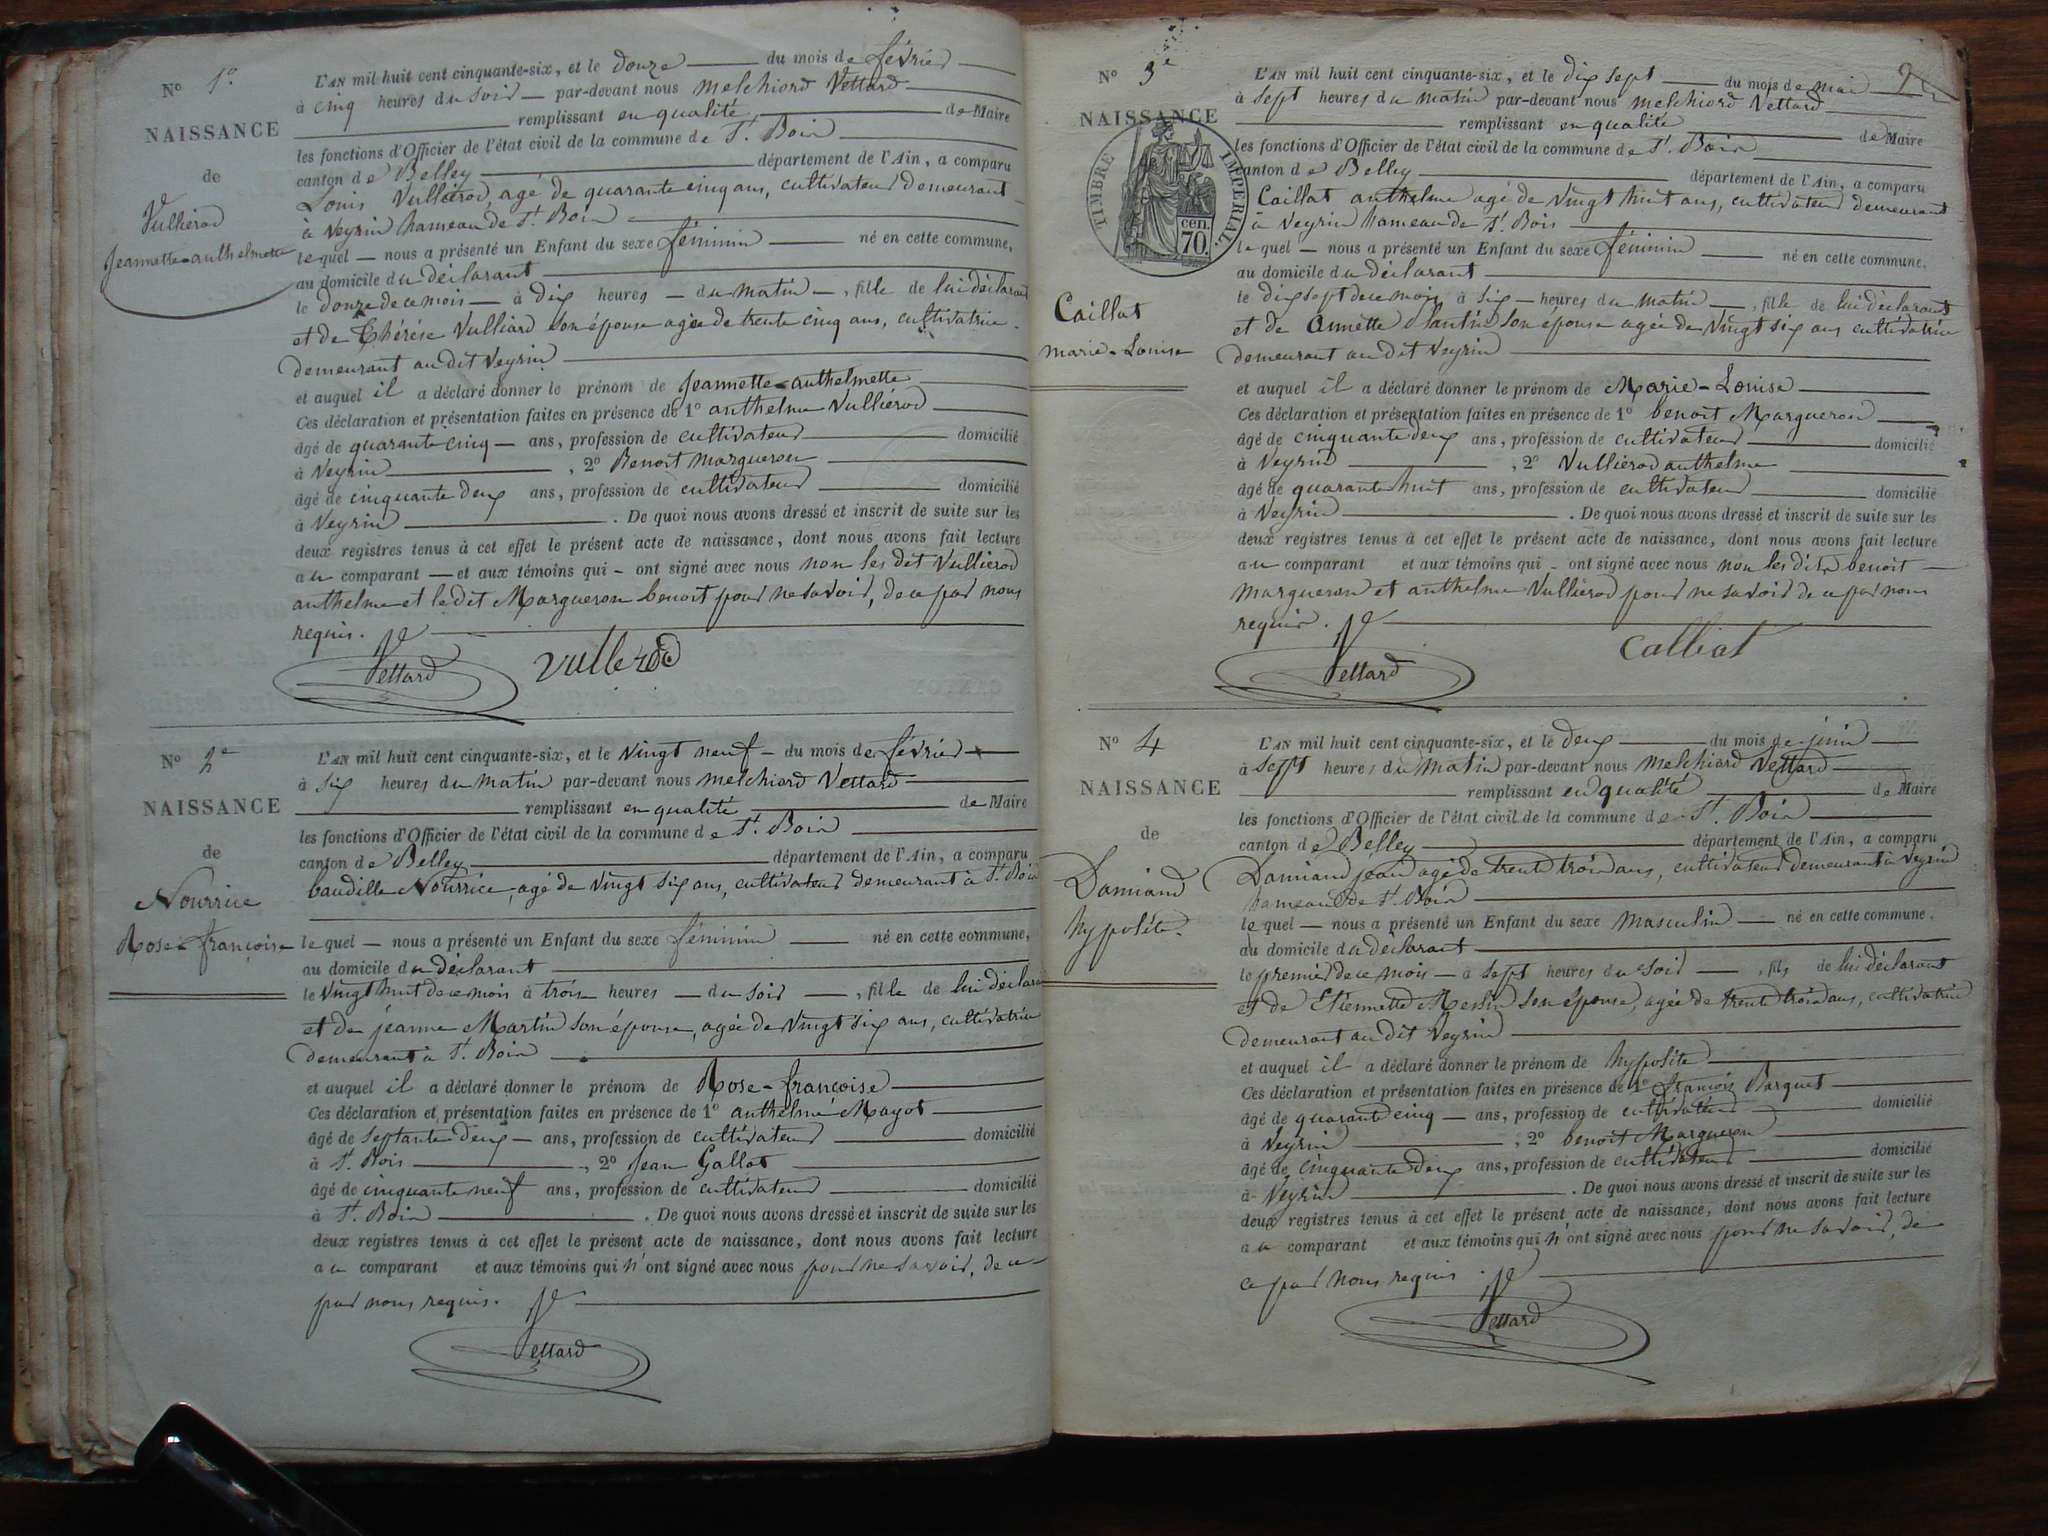 N° 1°.
NAISSANCE
de
Vulliérod
Jeannette-anthelmette
L'AN mil huit cent cinquante-six, et le douze du mois de février
à cinq heures du soir par-devant nous melchiord Vettard
remplissant en qualité de Maire
les fonctions d'Officier de l'état civil de la commune de St. Bois
canton de Belley département de l'Ain, a comparu
Louis Vulliérod, agé de quarante cinq ans, cultivateur demeurant
à Veyrin hameau de St. Bois
lequel nous a présenté un Enfant du sexe féminin né en cette commune,
au domicile du déclarant
le douze de ce mois à dix heures du matin, fille de lui déclarant
et de Thérése Vulliard son épouse agée de trente cinq ans, cultivatrice
demeurant au dit Veyrin
et auquel il a déclaré donner le prénom de Jeannette-anthelmette
Ces déclaration et présentation faites en présence de 1° anthelme Vulliérod
âgé de quarante cinq ans, profession de cultivateur domicilié
à Veyrin, 2° Benoit Margueron
âgé de cinquante deux ans, profession de cultivateur domicilié
à Veyrin. De quoi nous avons dressé et inscrit de suite sur les
deux registres tenus à cet effet le présent acte de naissance, dont nous avons fait lecture
au comparant et aux témoins qui ont signé avec nous non les dit Vulliérod
anthelme et le dit Margueron benoit pour ne savoir, de ce par nous
requis.
Vettard
N° 2e
NAISSANCE
de
Nourrice
Rose-françoise
L'AN mil huit cent cinquante-six, et le vingt neuf du mois de février
à six heures du matin par-devant nous melchiord Vettard
remplissant en qualité de Maire
les fonctions d'Officier de l'état civil de la commune de St. Bois
canton de Belley département de l'Ain, a comparu
baudille Nourrice, agé de vingt six ans, cultivateur demeurant à St. Bois
lequel nous a présenté un Enfant du sexe féminin né en cette commune,
au domicile du déclarant
le vingt huit de ce mois à trois heures du soir, fille de lui déclarant
et de jeanne Martin son épouse, agée de vingt six ans, cultivatrice
demeurant à St. Bois
et auquel il a déclaré donner le prénom de Rose-françoise
Ces déclaration et présentation faites en présence de 1° anthelme Mayot
âgé de septante deux ans, profession de cultivateur domicilié
à St. Bois, 2° Jean Gallot
âgé de cinquante neuf ans, profession de cultivateur domicilié
à St. Bois. De quoi nous avons dressé et inscrit de suite sur les
deux registres tenus à cet effet le présent acte de naissance, dont nous avons fait lecture
au comparant et aux témoins qui n'ont signé avec nous pour ne savoir, de ce
par nous requis.
Vettard
N° 3e
NAISSANCE
TIMBRE IMPERIAL.
70. cen.
Caillat
marie-Louise
L'AN mil huit cent cinquante-six, et le dix sept du mois de mai
à sept heures du matin par-devant nous melchiord Vettard
remplissant en qualité de Maire
les fonctions d'Officier de l'état civil de la commune de St. Bois
canton de Belley département de l'Ain, a comparu
Caillat anthelme agé de vingt huit ans, cultivateur demeurant
à Veyrin hameau de St. Bois
lequel nous a présenté un Enfant du sexe féminin né en cette commune.
au domicile du déclarant
le dix sept de ce mois à six heures du matin, fille de lui déclarant
et de Annette son épouse agée de vingt six ans cultivatrice
demeurant au dit Veyrin
et auquel il a déclaré donner le prénom de Marie-Louise
Ces déclaration et présentation faites en présence de 1° benoit Margueron
âgé de cinquante deux ans, profession de cultivateur domicilié
à Veyrin, 2° Vulliérod anthelme
âgé de quarante huit ans, profession de cultivateur domicilié
à Veyrin. De quoi nous avons dressé et inscrit de suite sur les
deux registres tenus à cet effet le présent acte de naissance, dont nous avons fait lecture
au comparant et aux témoins qui ont signé avec nous non les dits benoit
Margueron et anthelme Vulliérod pour ne savoir de ce par nous
requis.
Vettard calliat
N° 4
NAISSANCE
de
Damiand
hypolite.
L'AN mil huit cent cinquante-six, et le deux du mois de juin
à sept heures du matin par-devant nous melchiord Vettard
remplissant en qualité de Maire
les fonctions d'Officier de l'état civil de la commune de St. Bois
canton de Belley département de l'Ain, a comparu
Damiand jean agé de trente trois ans, cultivateur demeurant à Veyrin
hameau de St. Bois
lequel nous a présenté un Enfant du sexe masculin né en cette commune.
au domicile du déclarant
le premier de ce mois à sept heures du soir, fils de lui déclarant
et de Etiennette son épouse, agée de trente trois ans, cultivatrice
demeurant au dit Veyrin
et auquel il a déclaré donner le prénom de hypolite
Ces déclaration et présentation faites en présence de 1° françois Parquet
âgé de quarante cinq ans, profession de cultivateur domicilié
à Veyrin, 2° benoit Margueron
âgé de cinquante deux ans, profession de cultivateur domicilié
à Veyrin. De quoi nous avons dressé et inscrit de suite sur les
deux registres tenus à cet effet le présent acte de naissance, dont nous avons fait lecture
au comparant et aux témoins qui n'ont signé avec nous pour ne savoir, de
ce par nous requis.
Vettard